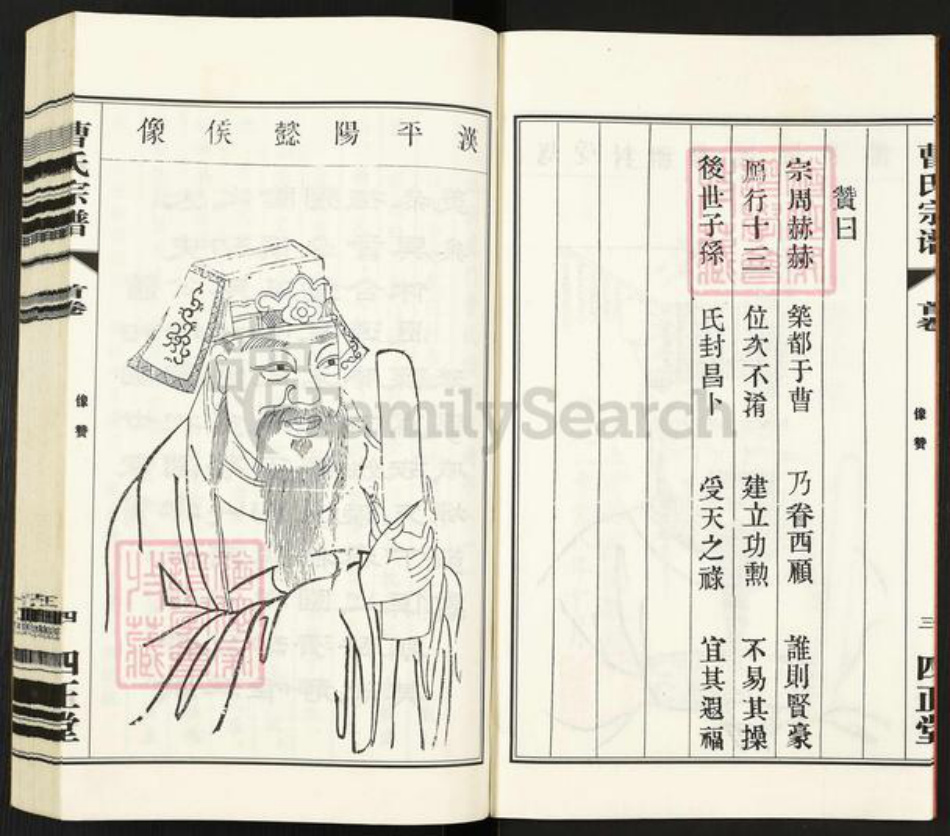 曹氏宗譜
首卷
像贊
三
四正堂
贊曰
宗周赫赫 築都于曹 乃眷西顧 誰則賢豪
位次不淆 建立功勲 不易其操
後世子孫 氏封昌卜 受天之祿 宜其遐福
漢平陽懿侯像
曹氏宗譜
首卷
像贊
四
四正堂
FamilySearch